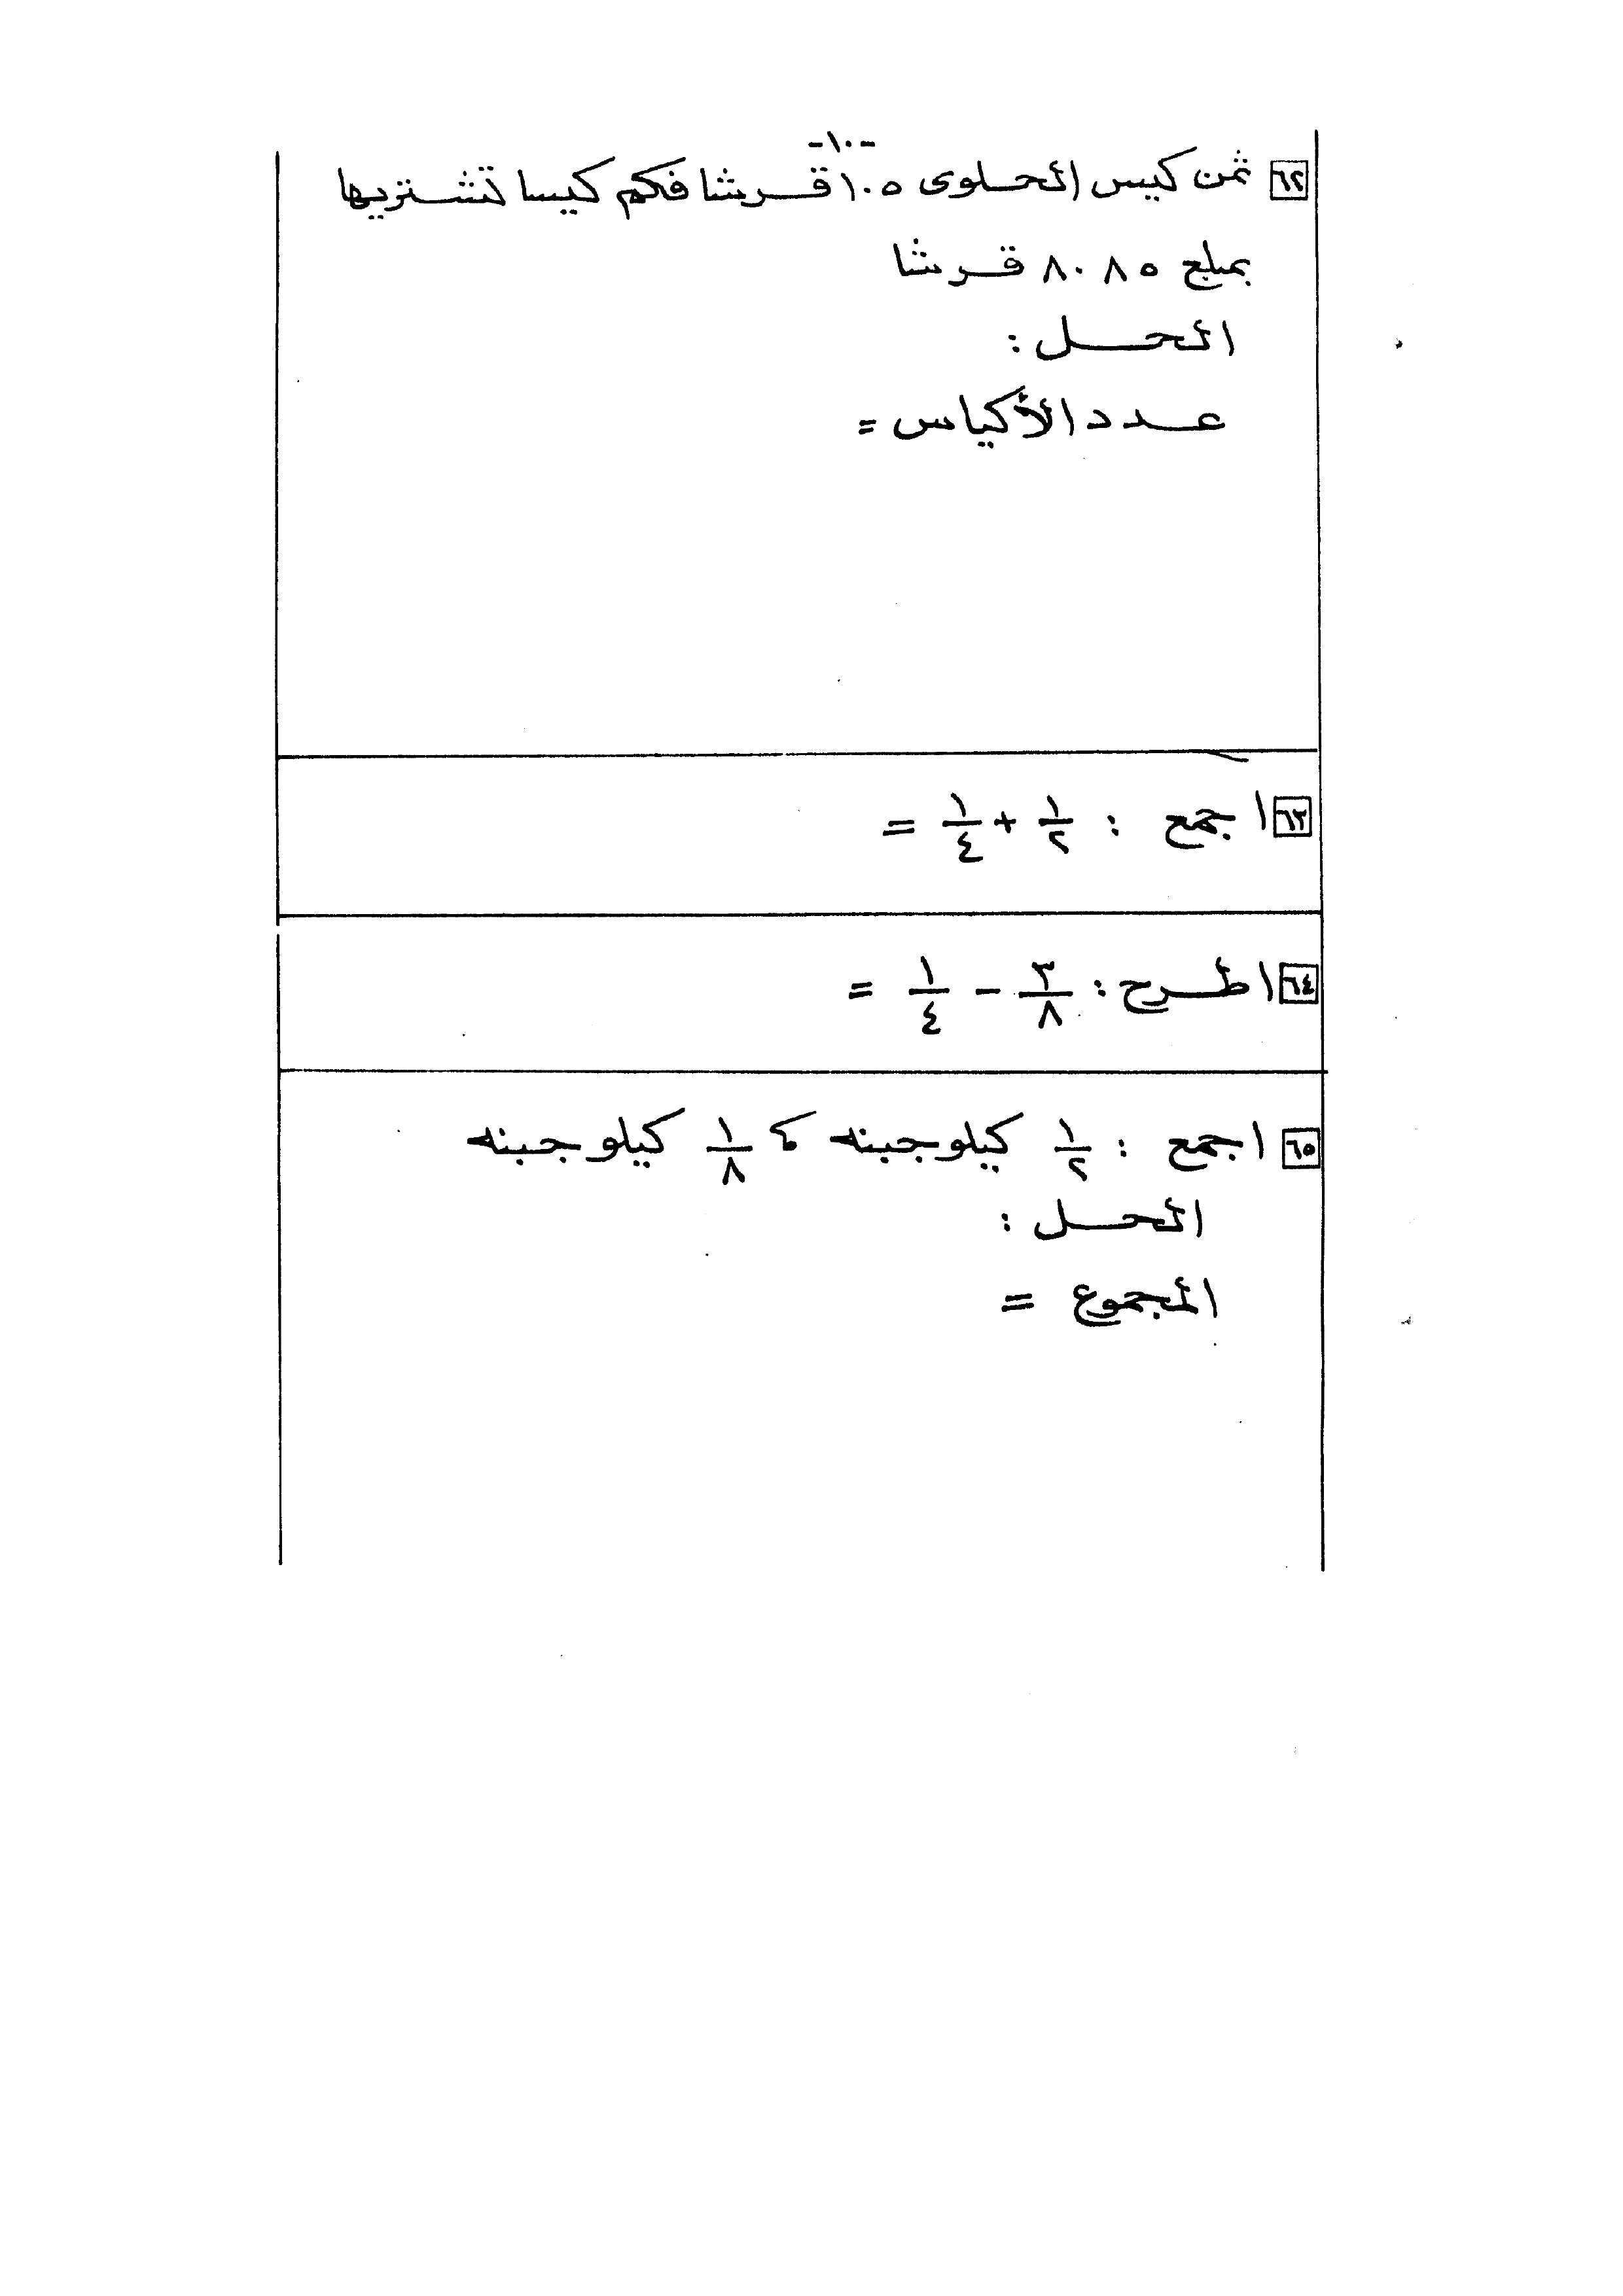 -١٠-
٦٢ ثمن كيس الحلوى ١٠٥ قرشا فكم كيسا تشتريها
بمبلغ ٨٠٨٥ قرشا
الحل :
عدد الأكياس =
٦٣ اجمع : ١/٢ + ١/٤ =
٦٤ اطرح : ٣/٨ - ١/٤ =
٦٥ اجمع : ١/٢ كيلو جبنه ، ١/٨ كيلو جبنه
الحل :
المجموع =